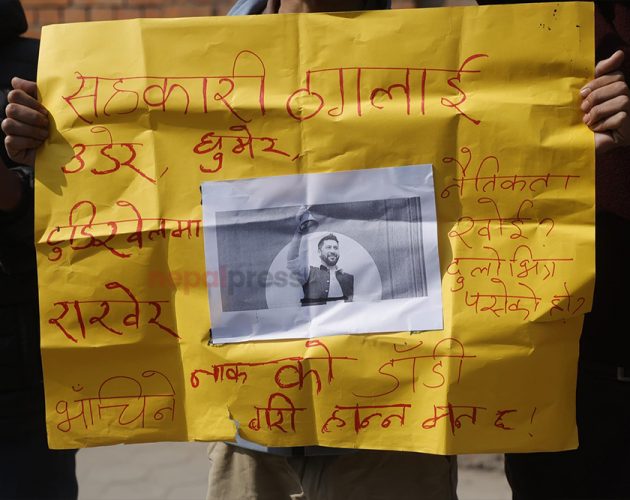 सहकारी ठगलाई
उडेर, घुमेर,
टुँडिखेलमा
राखेर
नैतिकता
खोई?
दुलोभित्र
पसेको हो?
नाक को डाँडी
भाँचिने
गरी हान्न मन छ!
nepalpress